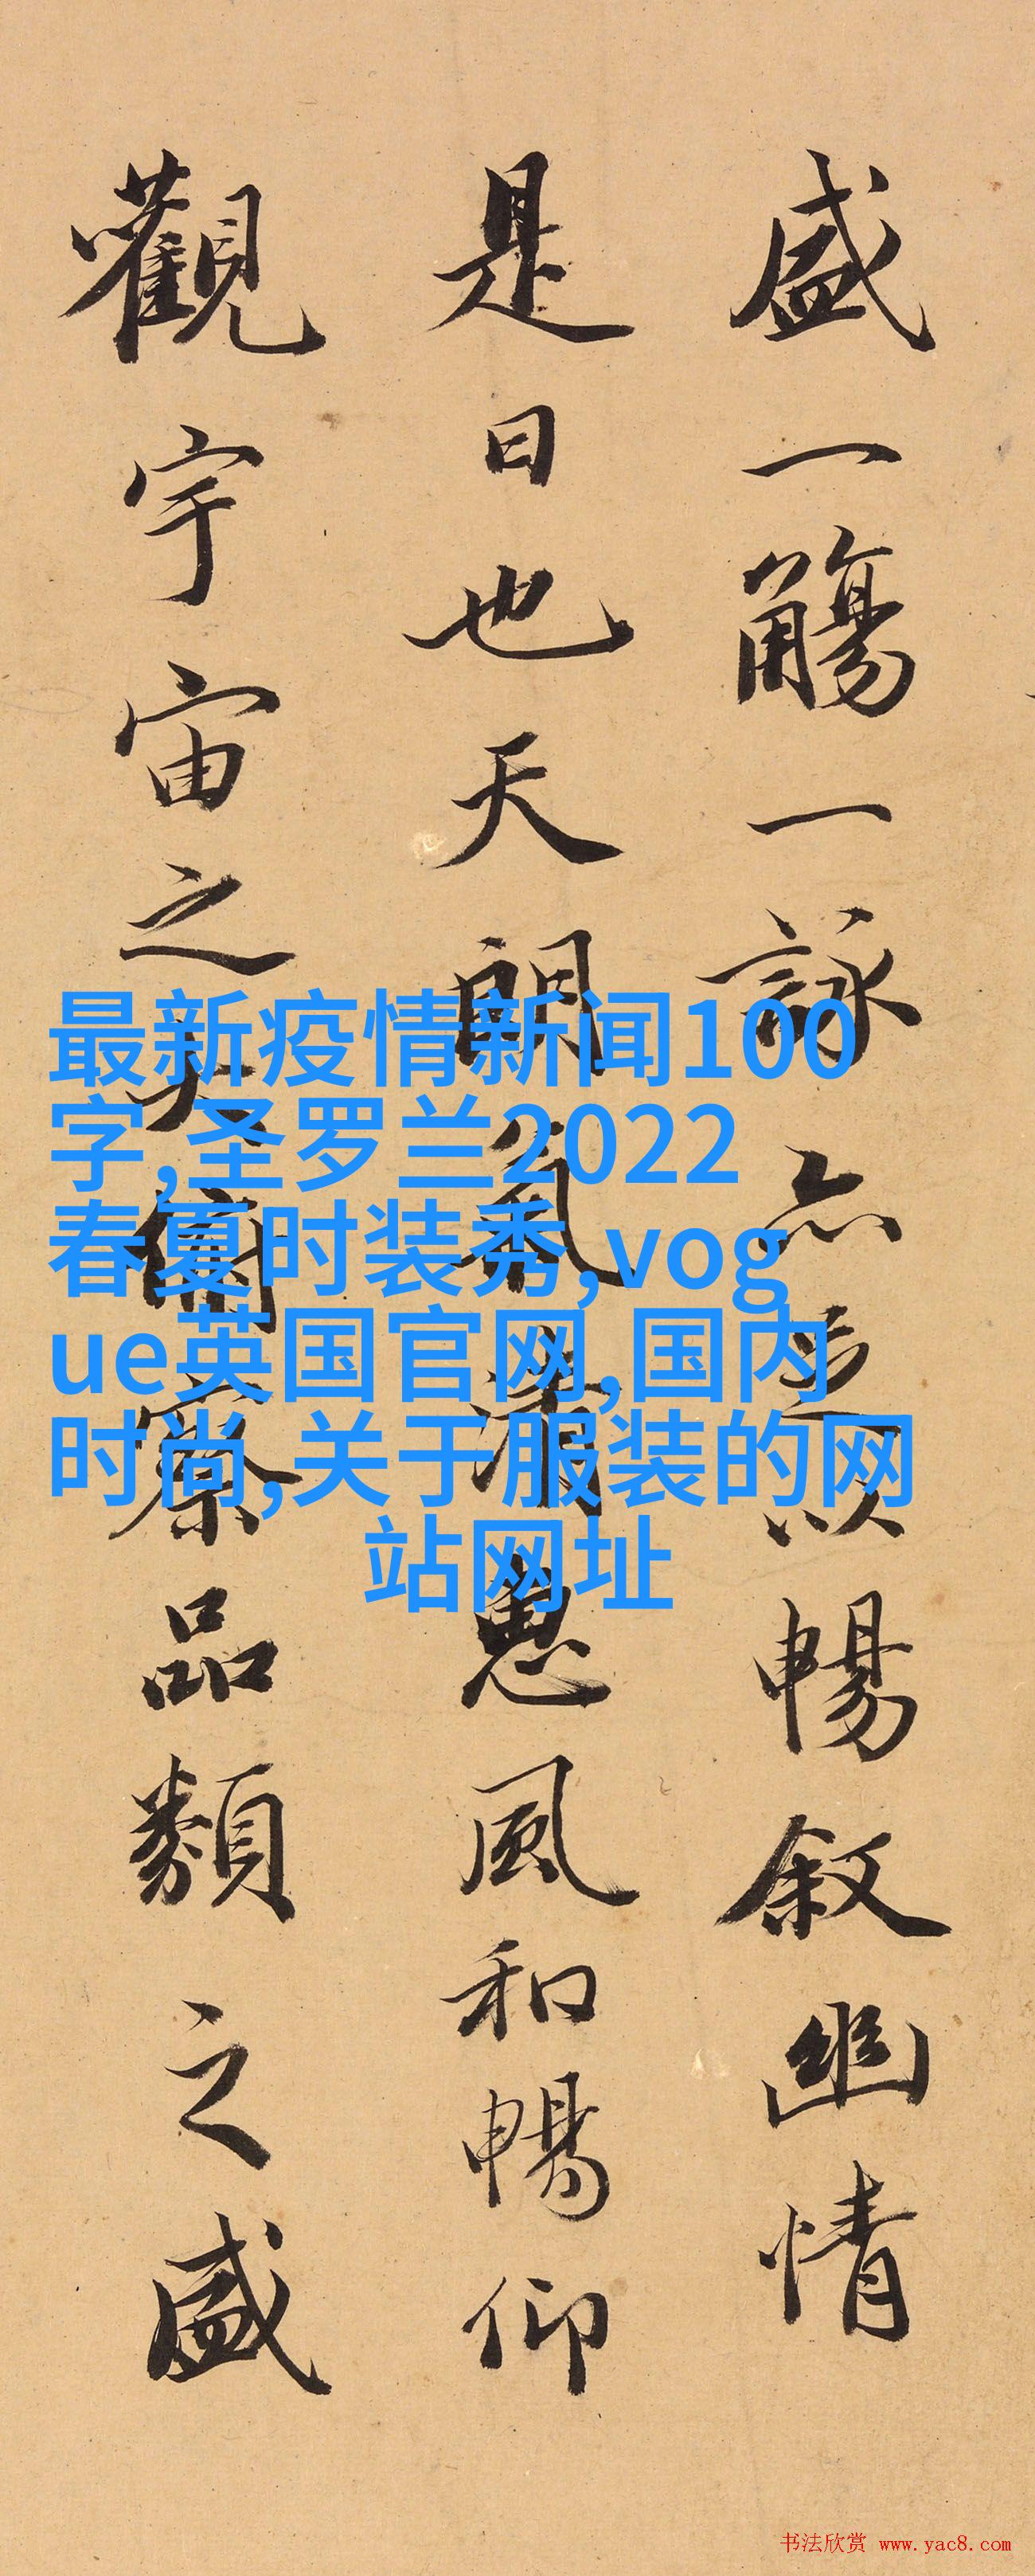 盛一觴一詠亦足以暢叙幽情
是日也天朗氣清惠風和暢仰
觀宇宙之大俯察品類之盛
最新疫情新闻100
字,圣罗兰2022
春夏时装秀,vog
ue英国官网,国内
时尚,关于服装的网
站网址
书法欣赏 www.yac8.com